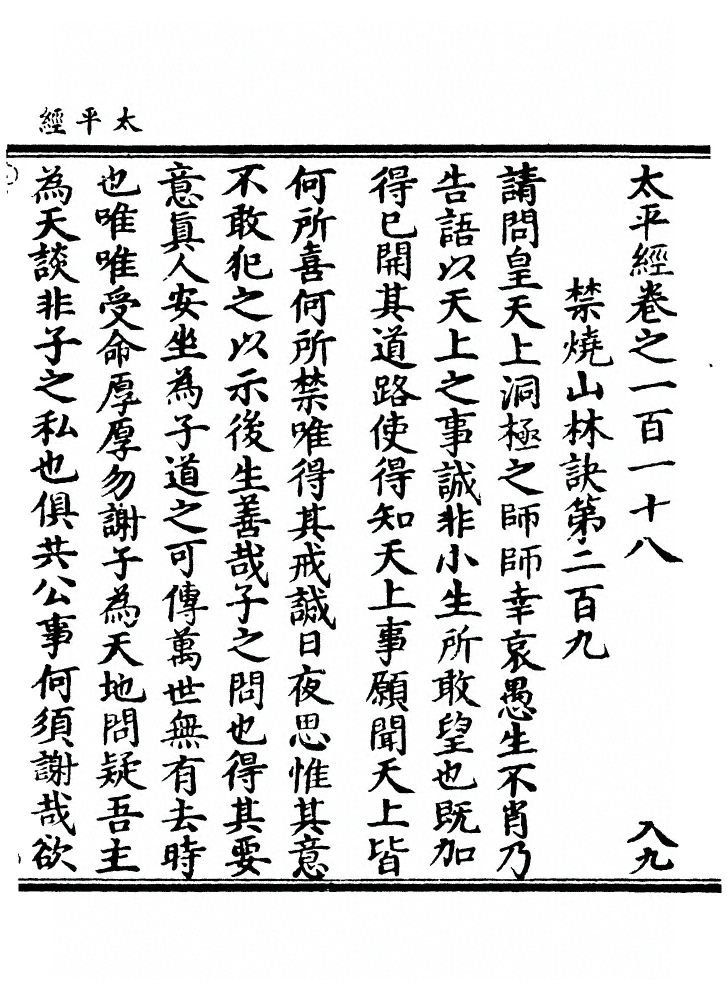 太平經
太平經卷之一百一十八　入九
禁燒山林訣第二百九
請問皇天上洞極之師師幸哀愚生不肖乃
告語以天上之事誠非小生所敢望也既加
得已開其道路使得知天上事願聞天上皆
何所喜何所禁唯得其戒誠日夜思惟其意
不敢犯之以示後生善哉子之問也得其要
意真人安坐為子道之可傳萬世無有去時
也唯唯受命厚厚勿謝子為天地問疑吾主
為天談非子之私也俱共公事何須謝哉欲